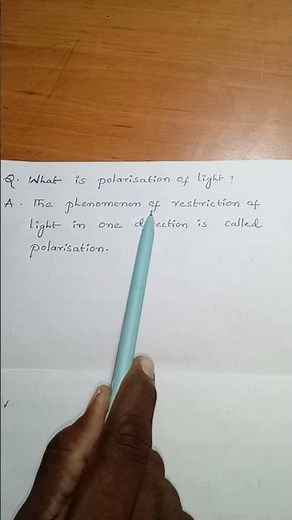 Q. What is polarisation of light?
A. The phenomenon of restriction of
light in one direction is called
polarisation.